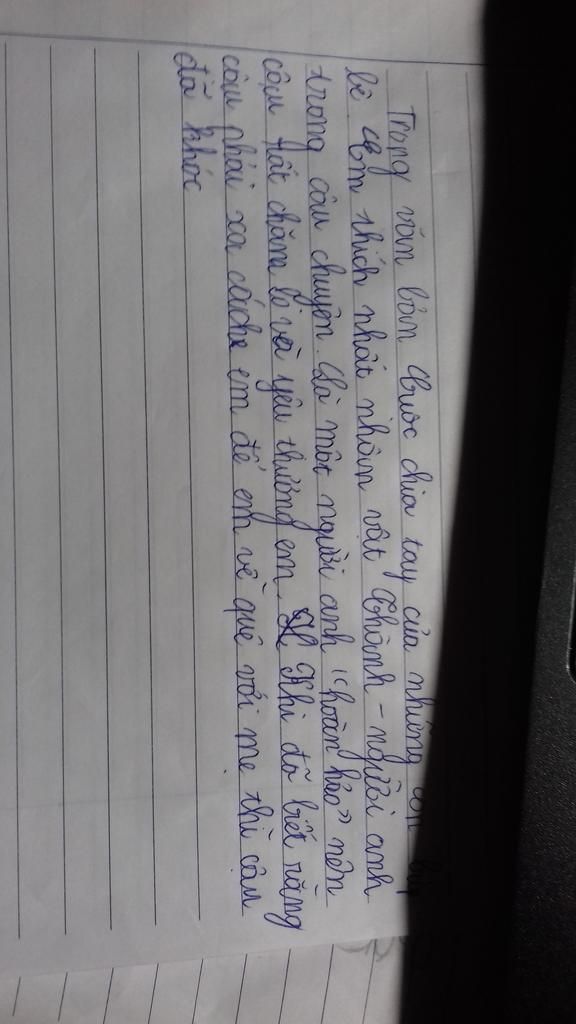 Trong văn bản Cuộc chia tay của những con búp
bê Em thích nhất nhân vật Thành - người anh
trong câu chuyện. Là một người anh "hoàn hảo" nên
cậu rất chăm lo và yêu thương em. Khi đã biết rằng
cậu phải xa cách em để em về quê với mẹ thì cậu
đã khóc